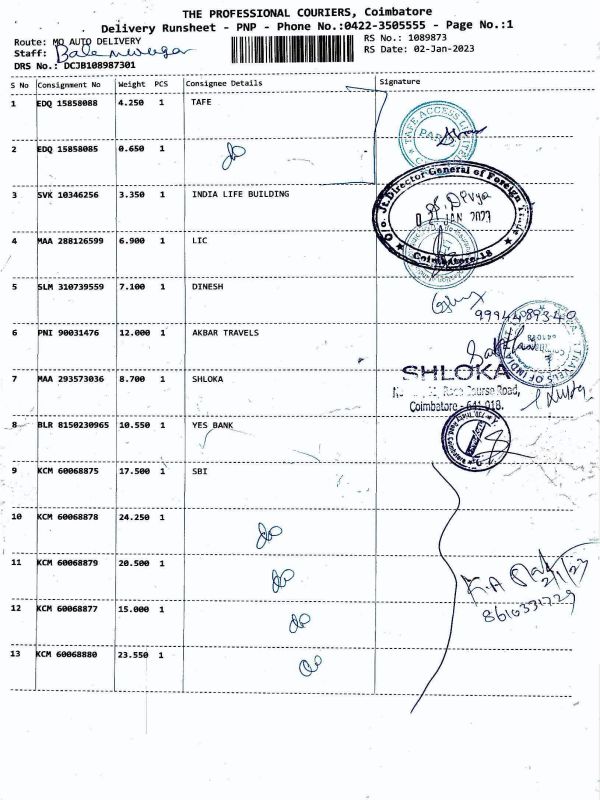 THE PROFESSIONAL COURIERS, Coimbatore
Delivery Runsheet - PNP - Phone No.:0422-3505555 - Page No.:1
Route: MO AUTO DELIVERY
RS No.: 1089873
Staff:
RS Date: 02-Jan-2023
DRS No.: DCJB108987301
S No Consignment No Weight PCS Consignee Details Signature
1 EDQ 15858088 4.250 1 TAFE
TAFE ACCESS LIMITED
2 EDQ 15858085 0.650 1 do
O/o. Jt.Director General of Foreign Trade
3 SVK 10346256 3.350 1 INDIA LIFE BUILDING
02 JAN 2023
4 MAA 288126599 6.900 1 LIC
Coimbatore-18
5 SLM 310739559 7.100 1 DINESH
9994489340
6 PNI 90031476 12.000 1 AKBAR TRAVELS
TRAVELS OF INDIA
7 MAA 293573036 8.700 1 SHLOKA
SHLOKA
Race Course Road,
Coimbatore - 641 018.
8 BLR 8150230965 10.550 1 YES BANK
9 KCM 60068875 17.500 1 SBI
10 KCM 60068878 24.250 1 do
11 KCM 60068879 20.500 1 do
2/1/23
8610331729
12 KCM 60068877 15.000 1 do
13 KCM 60068880 23.550 1 do